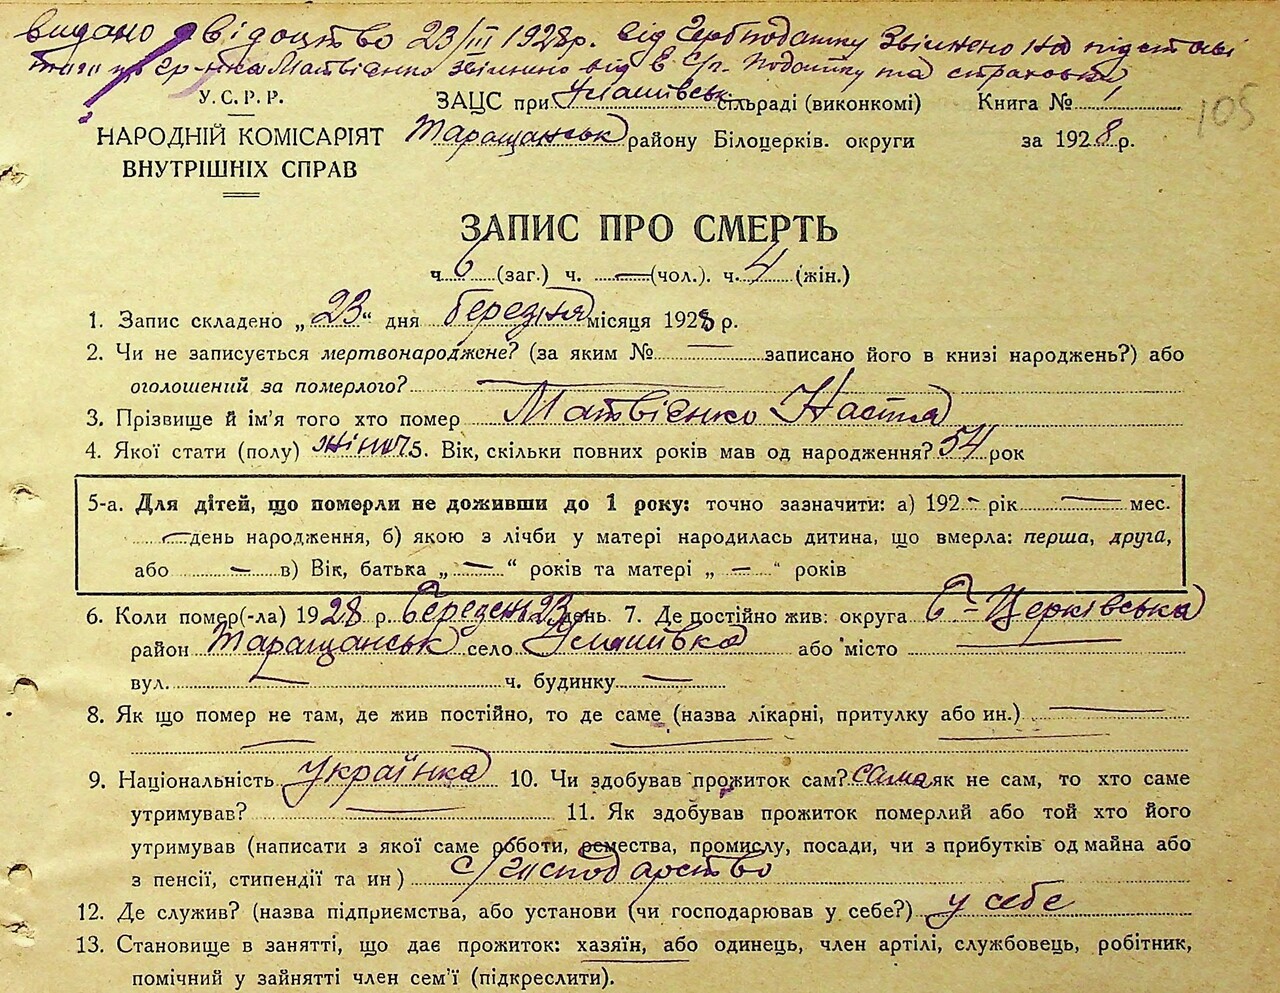 видано свідоцтво 23/III 1928р. від Гербподатку Звільнено на підставі
Матвієнко звільнено від Є. С/г. Податку та страховки
У.С.Р.Р.
ЗАЦС при сільраді (виконкомі) Книга № 1
105
НАРОДНІЙ КОМІСАРІЯТ
Таращанськ району Білоцерків. округи за 1928 р.
ВНУТРІШНІХ СПРАВ
ЗАПИС ПРО СМЕРТЬ
ч. 6 (заг.) ч. — (чол.). ч. 4 (жін.)
1. Запис складено „23“ дня березня місяця 1928 р.
2. Чи не записується мертвонароджене? (за яким № — записано його в книзі народжень?) або
оголошений за померлого? —
3. Прізвище й ім'я того хто помер Матвієнко Настя
4. Якої стати (полу) жіноч 5. Вік, скільки повних років мав од народження? 54 рок
5-а. Для дітей, що померли не доживши до 1 року: точно зазначити: а) 192 - рік — мес.
— день народження, б) якою з лічби у матері народилась дитина, що вмерла: перша, друга,
або — в) Вік, батька „ — “ років та матері „ — “ років
6. Коли помер(-ла) 1928 р. Березень 23 день 7. Де постійно жив: округа Б-Церківська
район Таращанськ село або місто —
вул. — ч. будинку —
8. Як що помер не там, де жив постійно, то де саме (назва лікарні, притулку або ин.) —
9. Національність українка 10. Чи здобував прожиток сам? сама як не сам, то хто саме
утримував? — 11. Як здобував прожиток померлий або той хто його
утримував (написати з якої саме роботи, ремества, промислу, посади, чи з прибутків од майна або
з пенсії, стипендії та ин) с/господарство
12. Де служив? (назва підприємства, або установи (чи господарював у себе?) у себе
13. Становище в занятті, що дає прожиток: хазяїн, або одинець, член артілі, службовець, робітник,
помічний у зайнятті член сем'ї (підкреслити).